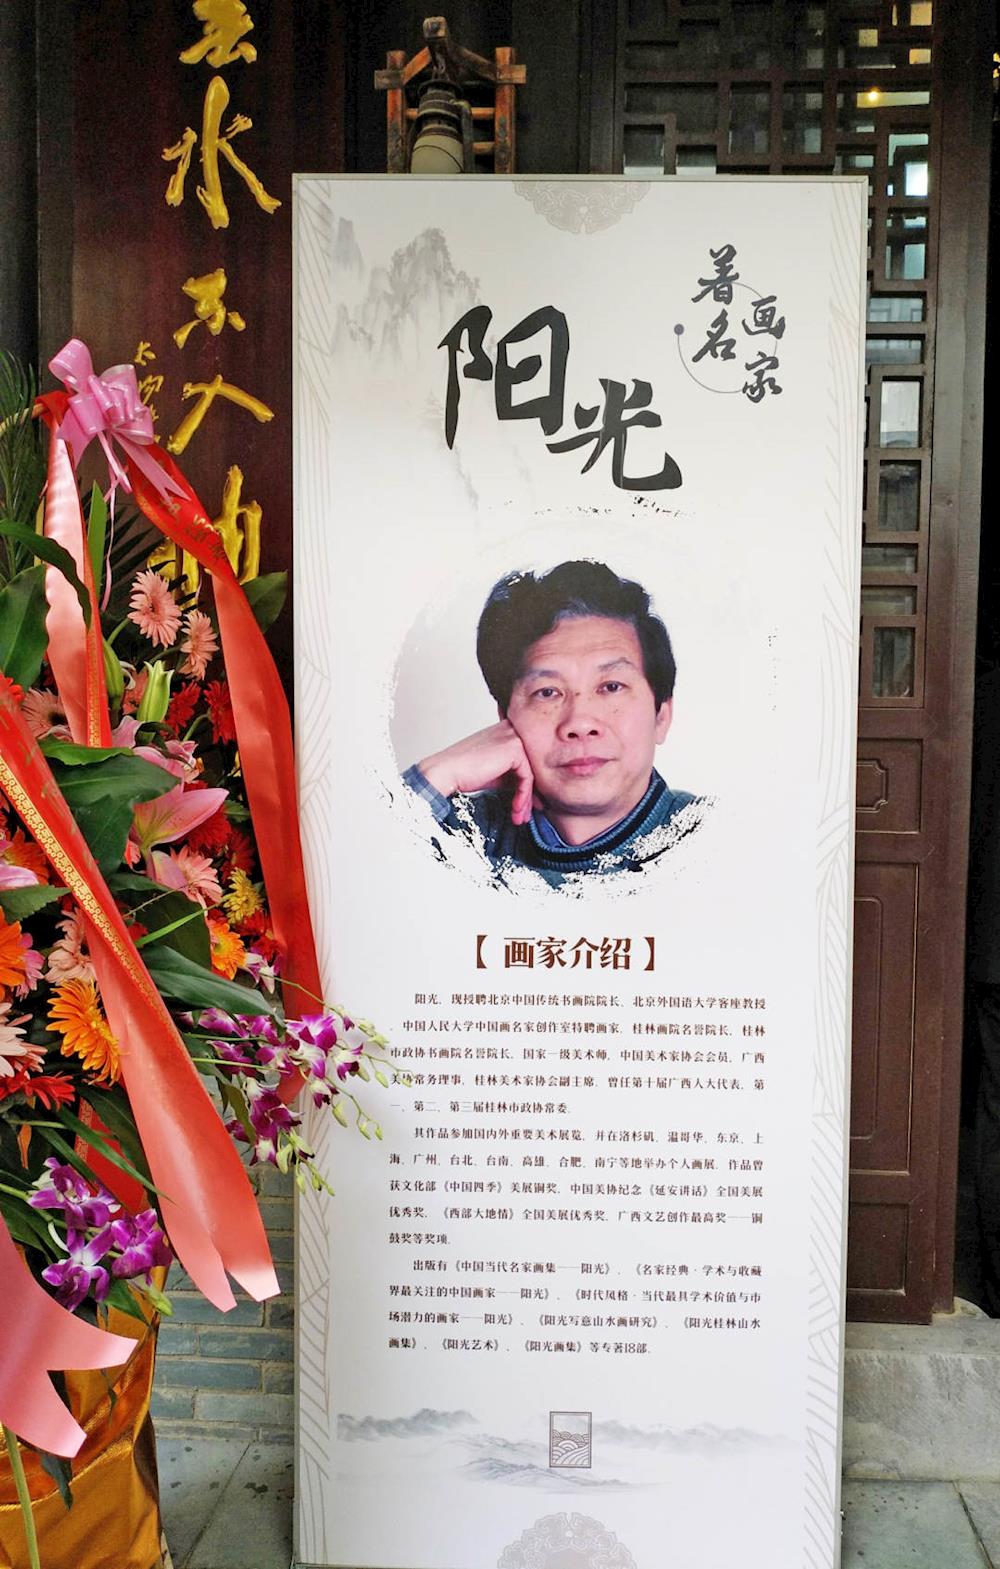 水
不
著名
画家
阳光
【画家介绍】
阳光，现授聘北京中国传统书画院院长、北京外国语大学客座教授
、中国人民大学中国画名家创作室特聘画家，桂林画院名誉院长，桂林
市政协书画院名誉院长，国家一级美术师，中国美术家协会会员，广西
美协常务理事，桂林美术家协会副主席，曾任第十届广西人大代表，第
一、第二、第三届桂林市政协常委。
其作品参加国内外重要美术展览，并在洛杉矶、温哥华、东京、上
海、广州、台北、台南、高雄、合肥、南宁等地举办个人画展，作品曾
获文化部《中国四季》美展铜奖，中国美协纪念《延安讲话》全国美展
优秀奖，《西部大地情》全国美展优秀奖，广西文艺创作最高奖——铜
鼓奖等奖项。
出版有《中国当代名家画集——阳光》、《名家经典·学术与收藏
界最关注的中国画家——阳光》、《时代风格·当代最具学术价值与市
场潜力的画家——阳光》、《阳光写意山水画研究》、《阳光桂林山水
画集》、《阳光艺术》、《阳光画集》等专著18部。